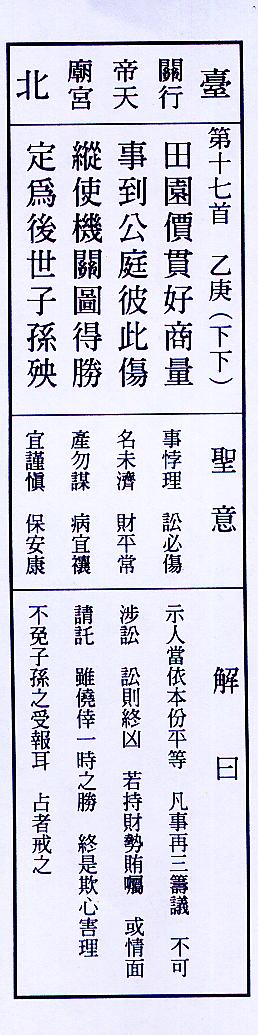 臺北
行天宮
關帝廟
第十七首 乙庚(下下)
田園價貫好商量
事到公庭彼此傷
縱使機關圖得勝
定為後世子孫殃
聖意
事悖理 訟必傷
名未濟 財平常
產勿謀 病宜禳
宜謹慎 保安康
解曰
示人當依本份平等 凡事再三籌議 不可
涉訟 訟則終凶 若持財勢賄囑 或情面
請託 雖僥倖一時之勝 終是欺心害理
不免子孫之受報耳 占者戒之